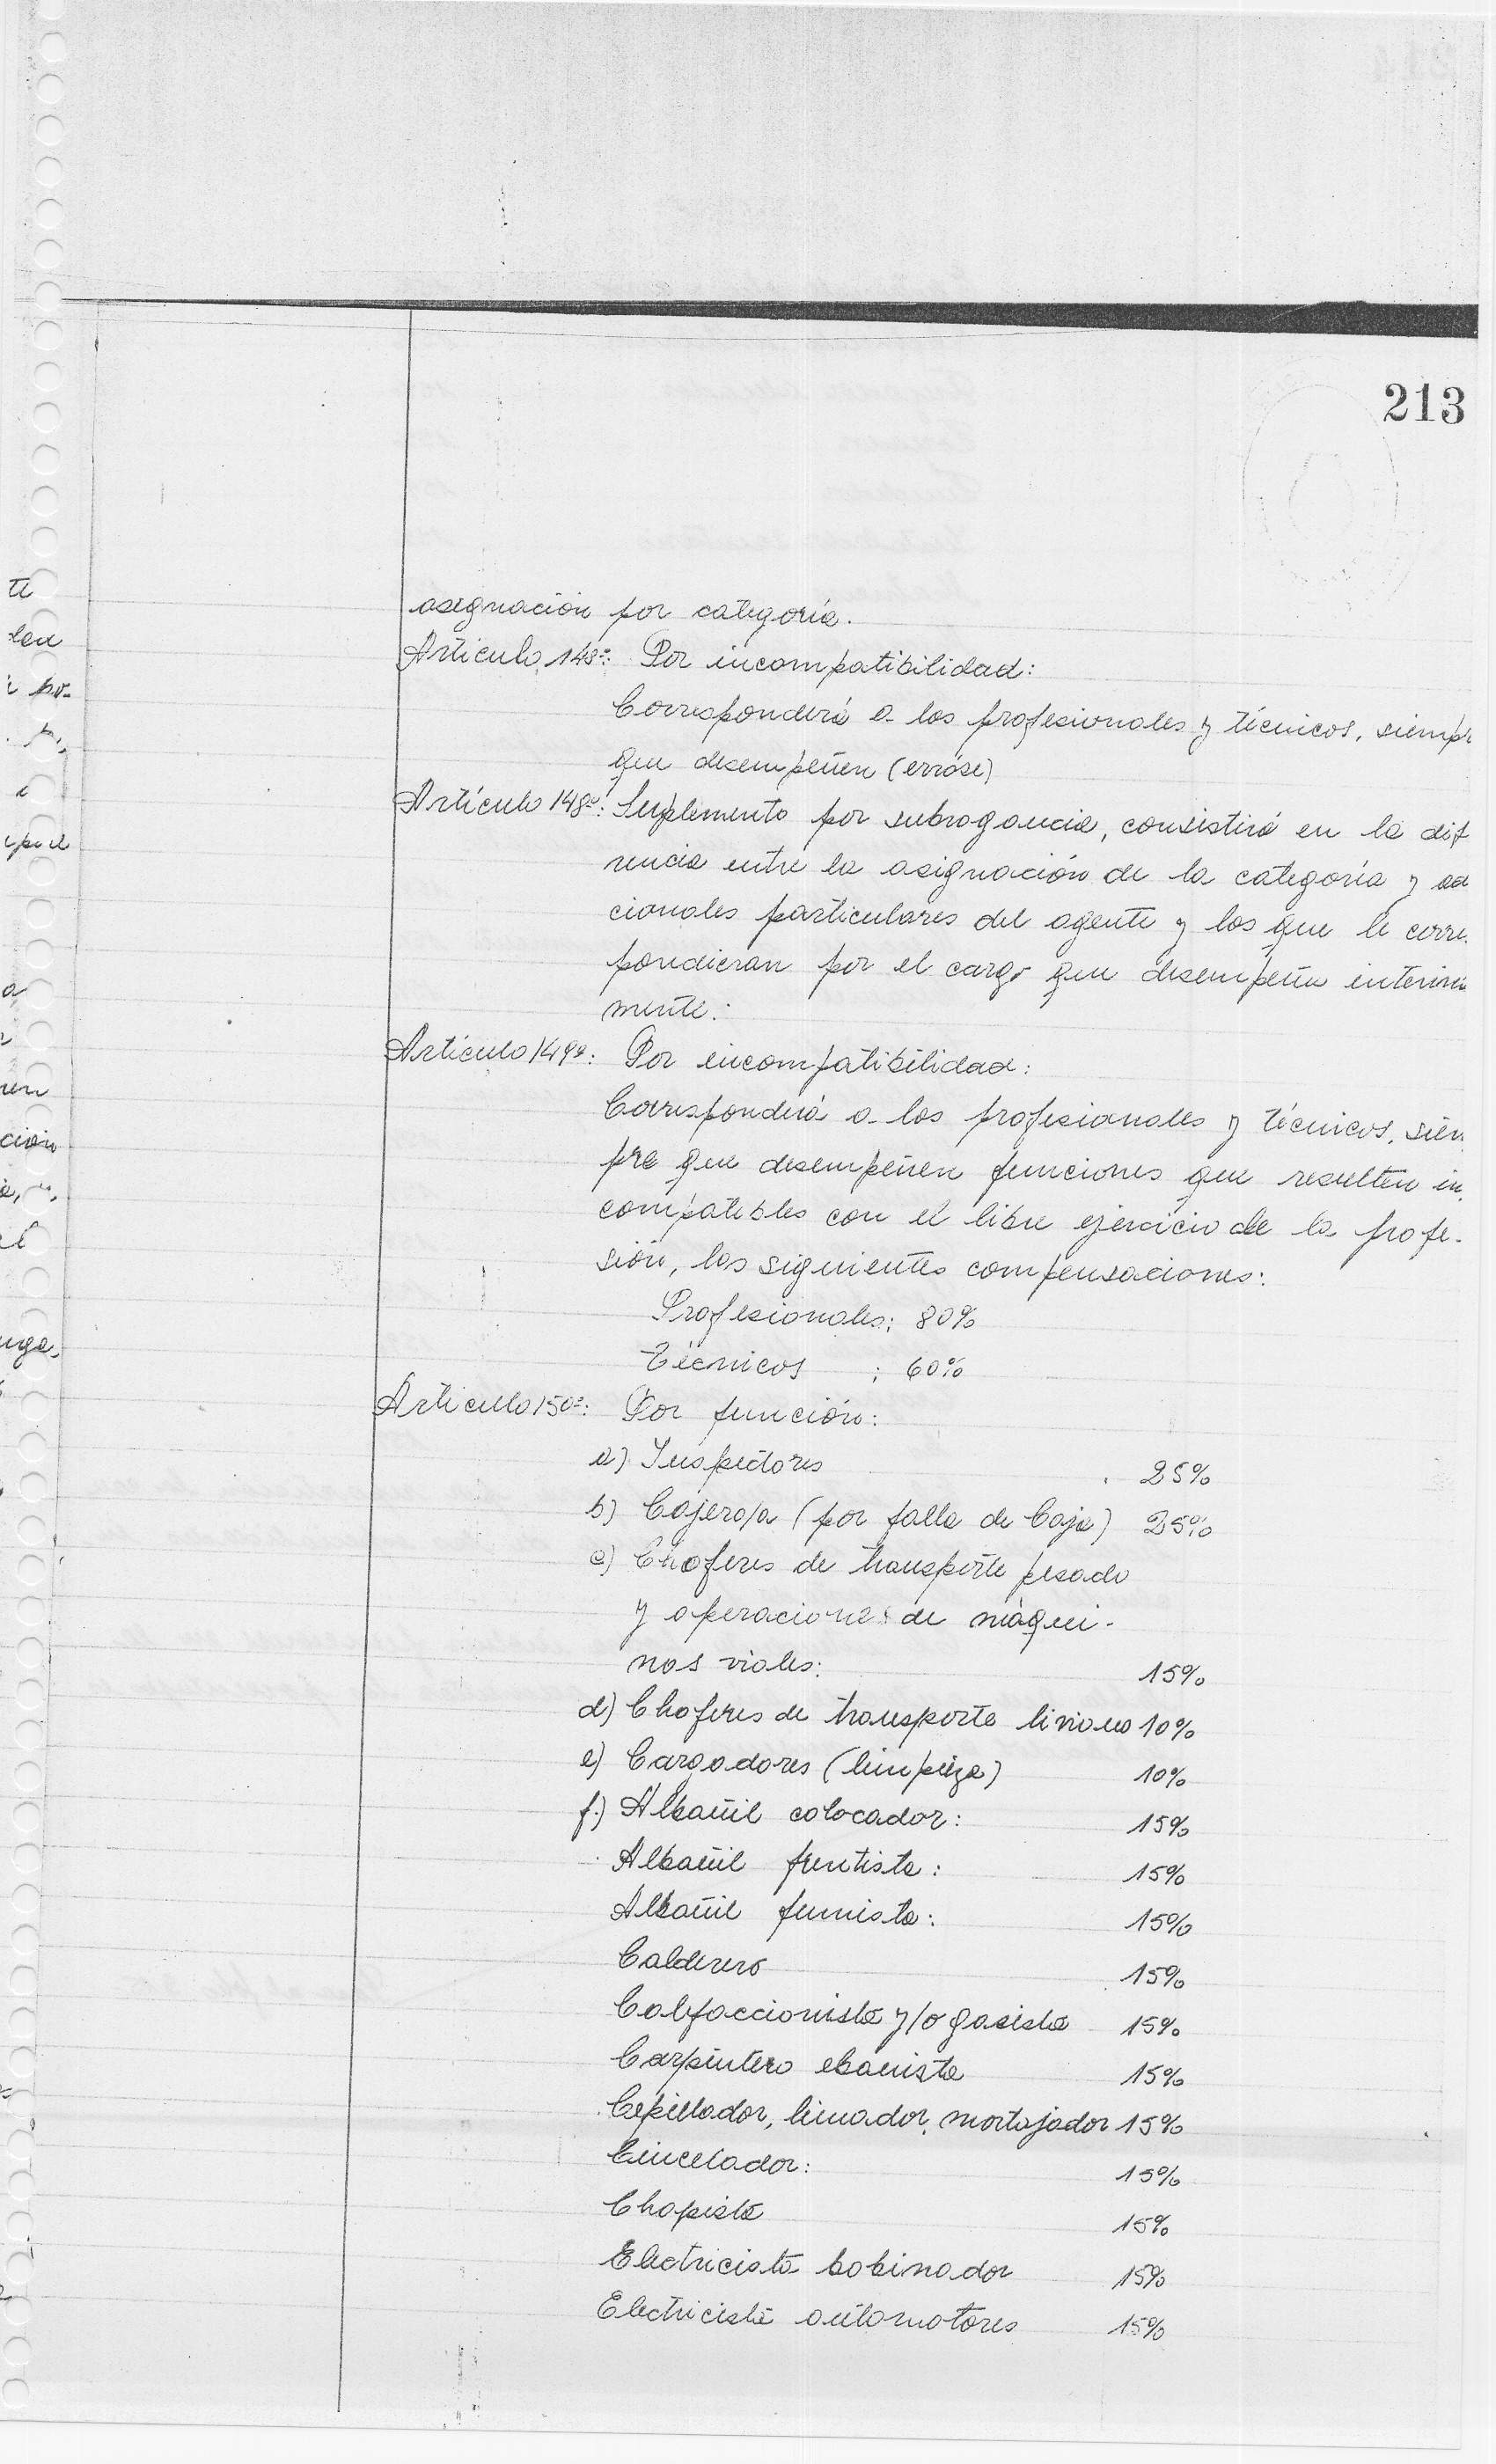 213
te
ren
ción
asignación por categoría.
Artículo 148º: Por incompatibilidad:
Corresponderá a los profesionales y técnicos, siempr
que desempeñen (erróse)
Artículo 148º: Suplemento por subrogancia, consistirá en la dif
rencia entre la asignación de la categoría y ad
cionales particulares del agente y los que le corre
pondieran por el cargo que desempeña interina
mente.
Artículo 149º: Por incompatibilidad:
Corresponderá a los profesionales y técnicos, siem
pre que desempeñen funciones que resulten in
compatibles con el libre ejercicio de la profe-
sión, las siguientes compensaciones:
Profesionales: 80%
Técnicos : 60%
Artículo 150º: Por función:
a) Inspectores 25%
b) Cajero/a (por falla de Caja) 25%
c) Choferes de transporte pesado
y operaciones de máqui-
nas viales: 15%
d) Choferes de transporte liviano 10%
e) Cargadores (limpieza) 10%
f) Albañil colocador: 15%
Albañil frentista: 15%
Albañil fumista: 15%
Calderero 15%
Calefaccionista y/o gasista 15%
Carpintero ebanista 15%
Cepillador, limador, mortajador 15%
Cincelador: 15%
Chapista 15%
Electricista bobinador 15%
Electricista automotores 15%